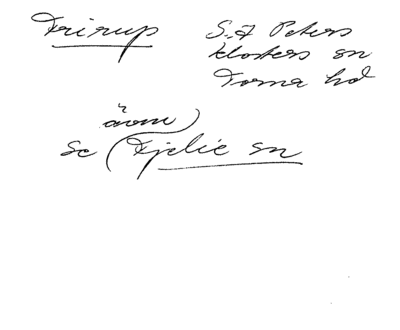 Frirup S:t Peters
klosters sn
Torna hd
även
Se (Fjelie sn